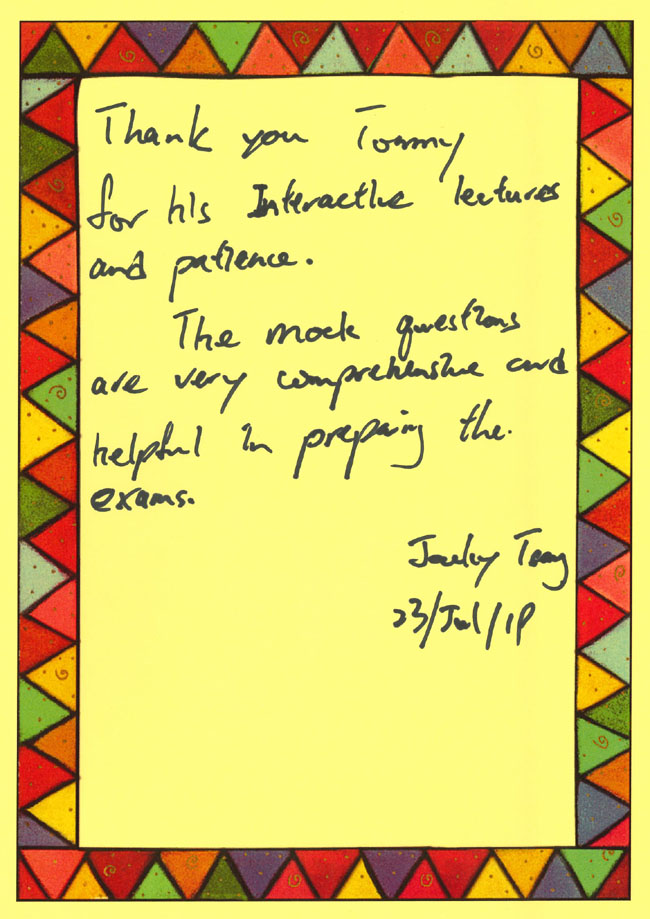 Thank you Tommy
for his Interactive lectures
and patience.
The mock questions
are very comprehensive and
helpful in preparing the
exams.
Tsang
23/Jul/19